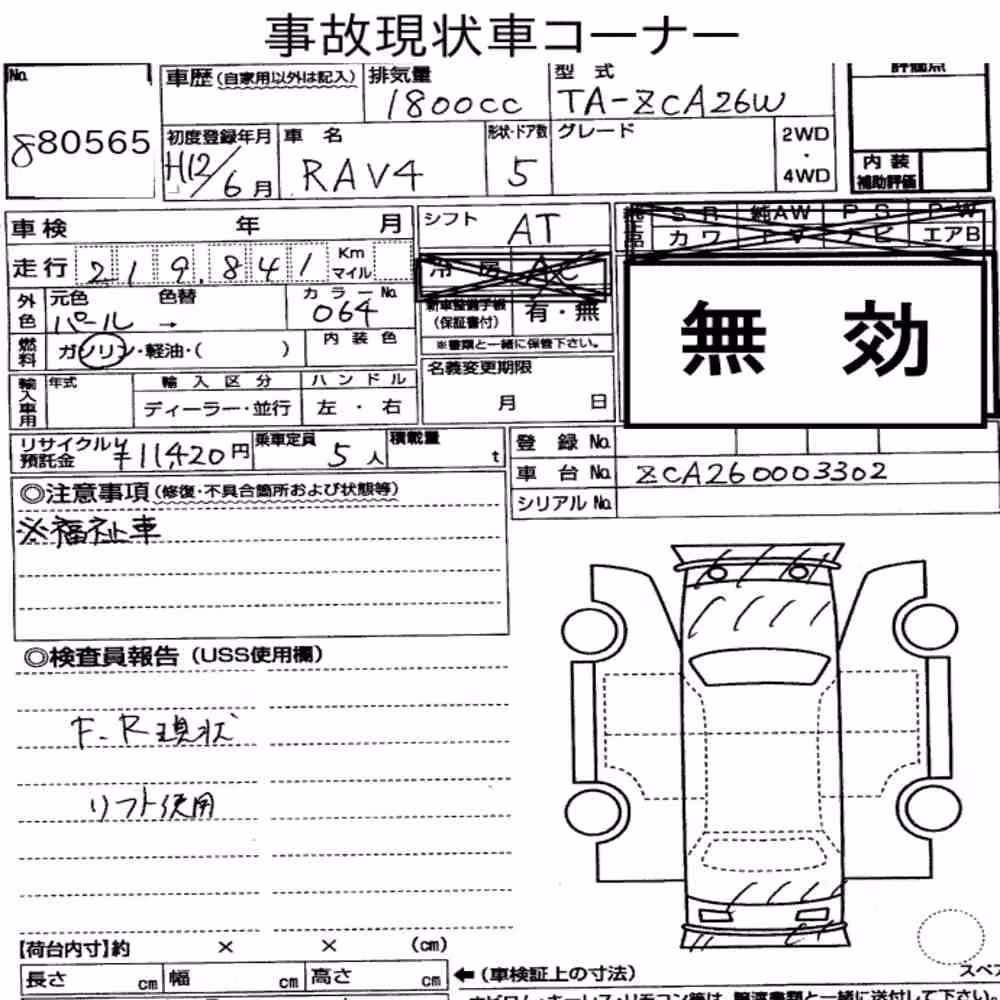 事故現状車コーナー
No.
880565
車歴(自家用以外は記入)
排気量
1800cc
型式
TA-ZCA26W
初度登録年月
H12/6月
車名
RAV4
形状・ドア数
5
グレード
2WD
・
4WD
内装
補助評価
車検 年 月
走行 219,841 Km マイル
シフト
AT
冷房 AC
新車整備手帳
(保証書付)
有・無
※書類と一緒に保管下さい。
SR 純AW PS PW
カワ TV ナビ エアB
無効
外色
元色 色替
パール →
カラーNo.
064
内装色
燃料
ガソリン・軽油・( )
輸入車用
年式
輸入区分
ディーラー・並行
ハンドル
左・右
名義変更期限
月 日
リサイクル預託金
¥11,420円
乗車定員
5人
積載量
t
登録No.
車台No. ZCA260003302
シリアルNo.
◎注意事項(修復・不具合箇所および状態等)
※福祉車
◎検査員報告(USS使用欄)
F.R現状
リフト使用
【荷台内寸】約 × × (cm)
長さ cm 幅 cm 高さ cm
←(車検証上の寸法)
スペア